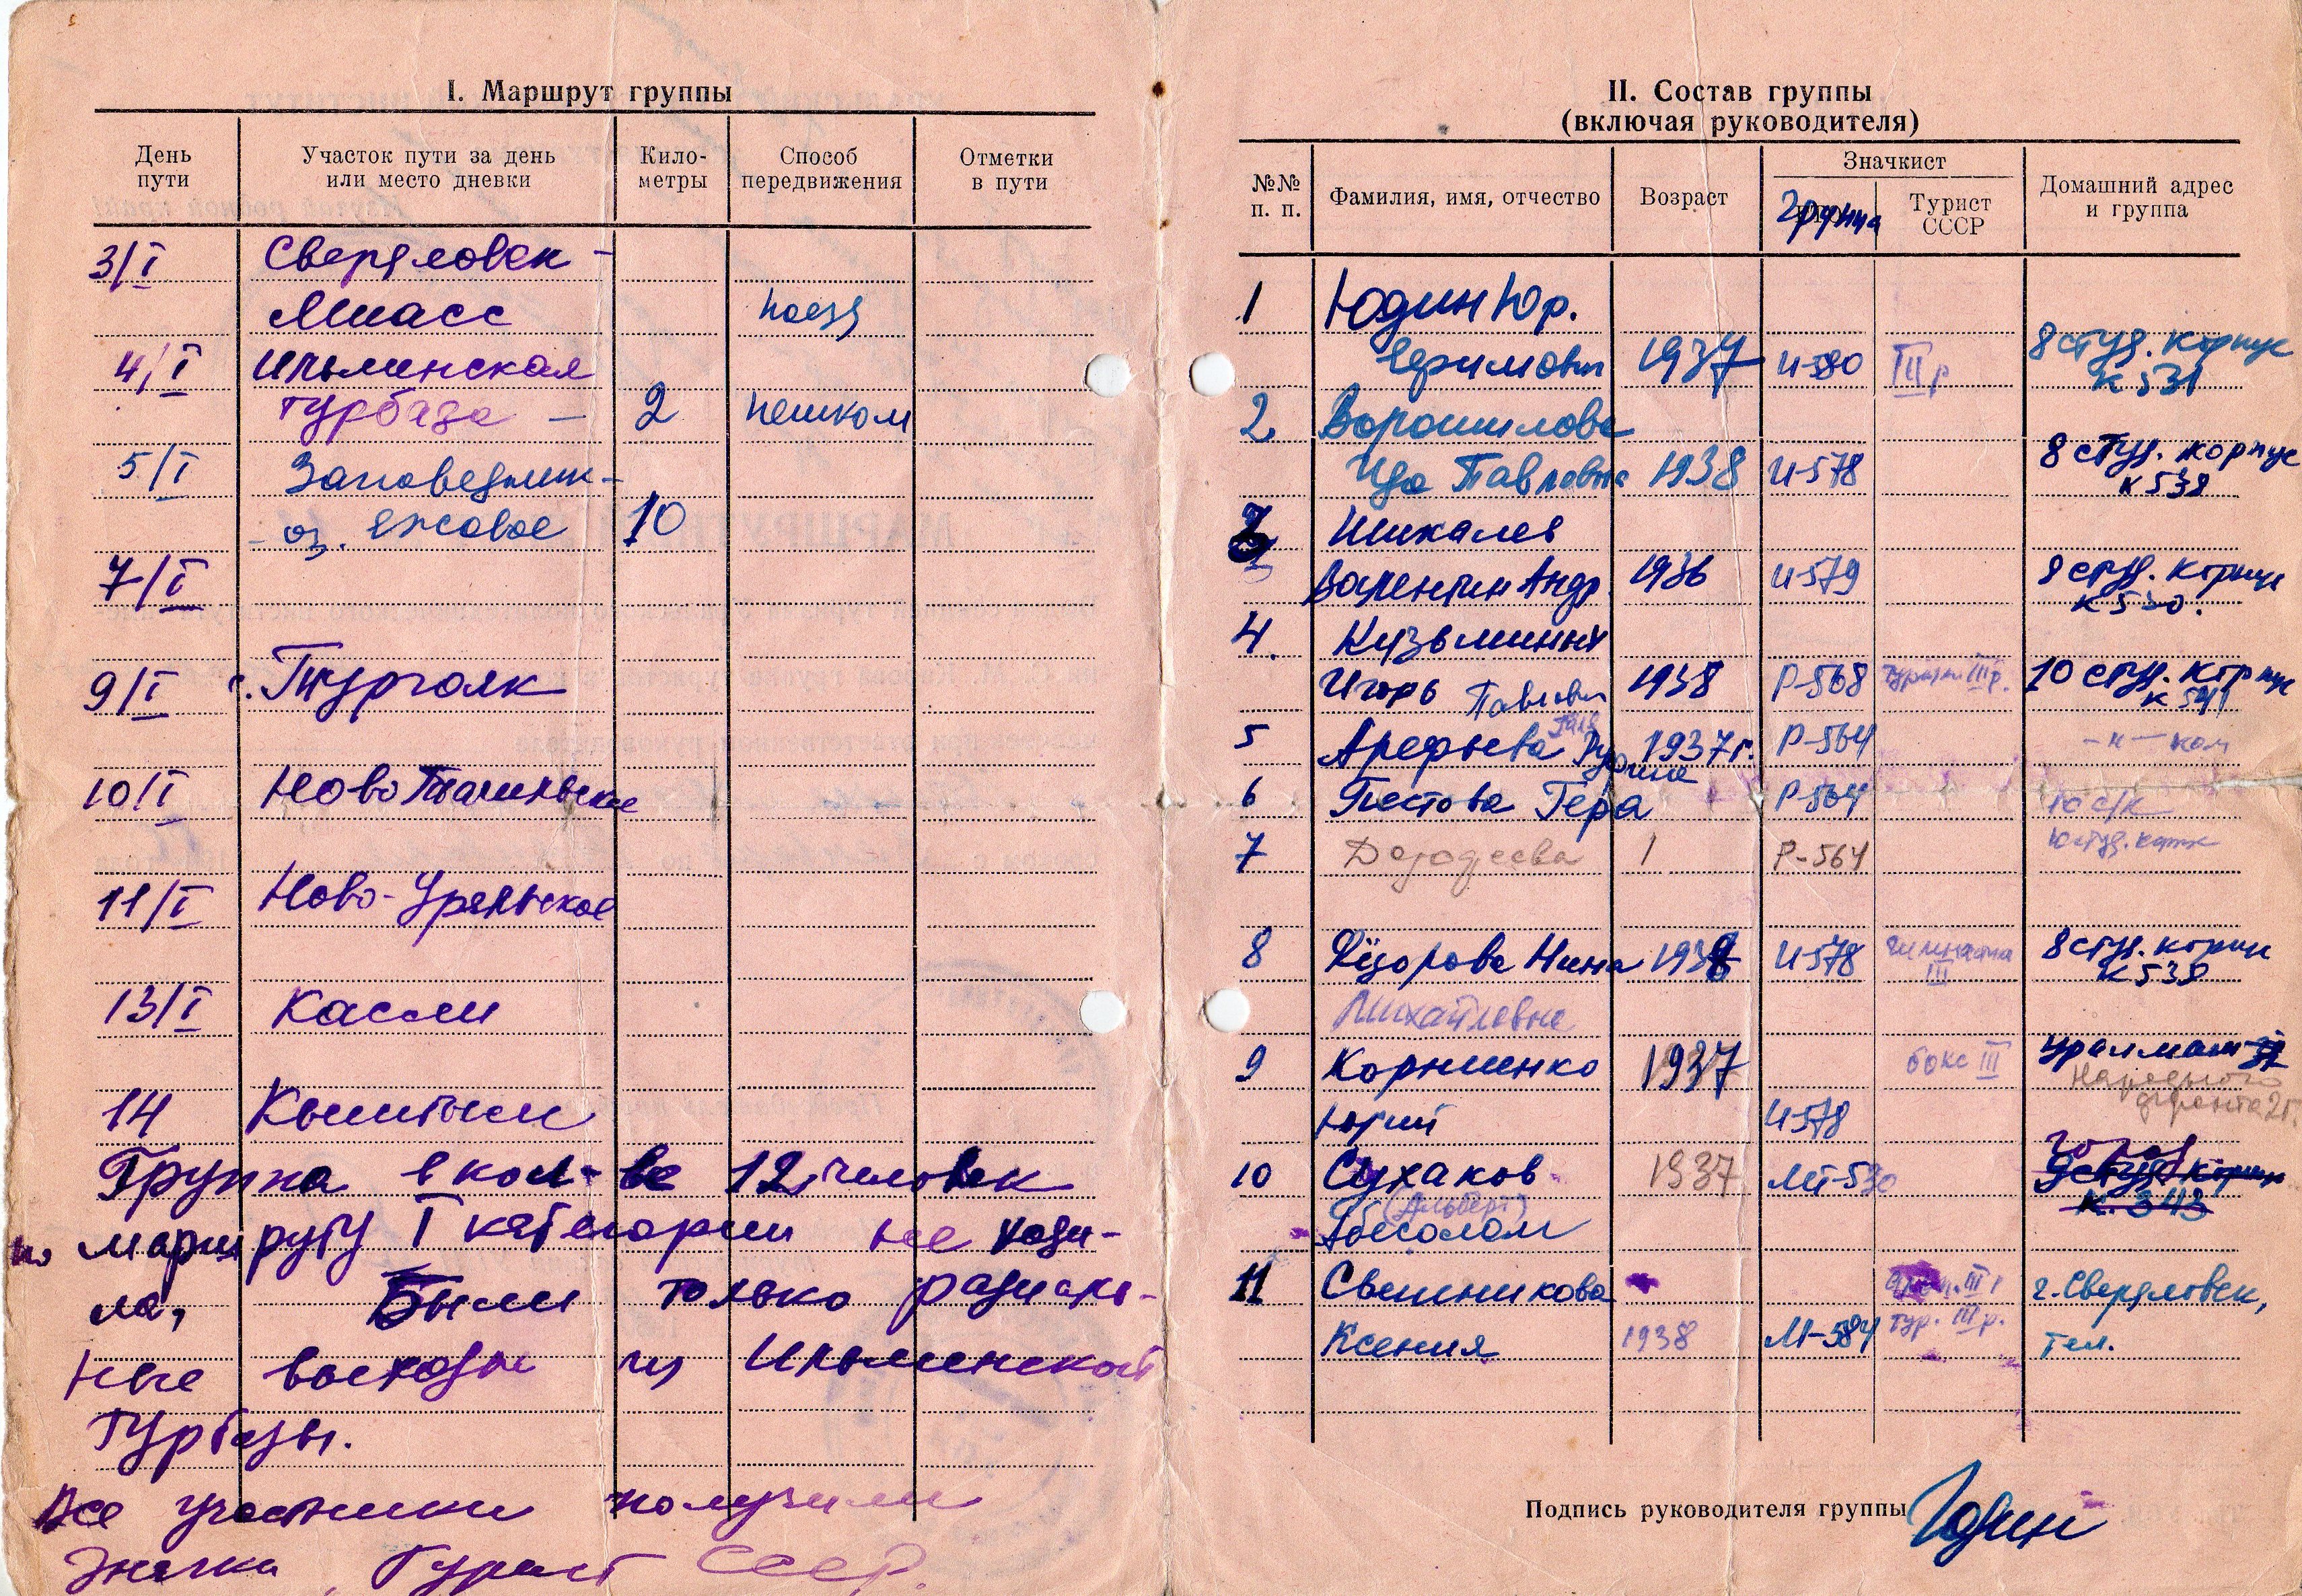 I. Маршрут группы
День пути
Участок пути за день или место дневки
Кило-метры
Способ передвижения
Отметки в пути
3/I Свердловск -
Миасс поезд
4/I Ильменская
турбаза — 2 пешком
5/I Заповедник -
- оз. Ежовое 10
7/I
9/I с. Тургояк
10/I Ново Тагильское
11/I Ново-Уральское
13/I Касли
14 Кыштым
Группа в кол-ве 12 человек
по маршруту I категории не ходи-
ла, Были только радиаль-
ные выходы из Ильменской
турбазы.
Все участники получили
значки Турист СССР.
II. Состав группы
(включая руководителя)
№№ п. п.
Фамилия, имя, отчество
Возраст
Значкист
Группа
Турист СССР
Домашний адрес и группа
1 Юдин Юр.
Ефимович 1937 И-580 III р 8 студ. корпус
к 531
2 Ворошилова
Ида Павловна 1938 И-578 8 студ. корпус
к 539
3 Шикалев
Валентин Андр. 1936 И-579 8 студ. корпус
к 530.
4. Кузьминых
Игорь Павлович 1938 Р-568 туризм III р. 10 студ. корпус
к 541
5 Арефьева 1937 г. Р-564 - " - ком
6 Пестова Гера Р-564 10 с/к
7 Р-564 10 студ. корп
8 Нина 1938 И-578 гимнастика III 8 студ. корпус
к 539
Михайловна
9 Корниенко 1937 бокс III Уралмаш
Народного
фронта
Юрий И578
10 Сухаков 1937 МТ-530 9 студ корпус
к. 343
(Альберт)
Абесолом
11 Свешникова III г. Свердловск,
Ксения 1938 М-584 тур. III р. тел.
Подпись руководителя группы Юдин